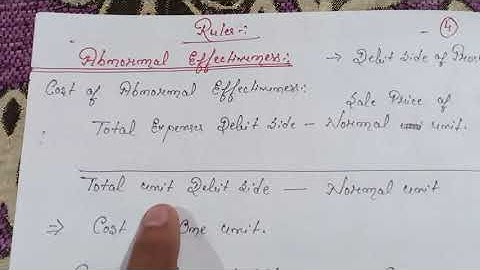 Rules:-
④
Abnormal Effectiveness:- → Debit side of
Cost of Abnormal Effectiveness:
Sale Price of
Total Expenses Debit side - Normal unit.
Total unit Debit side - Normal unit
⇒ Cost One unit.